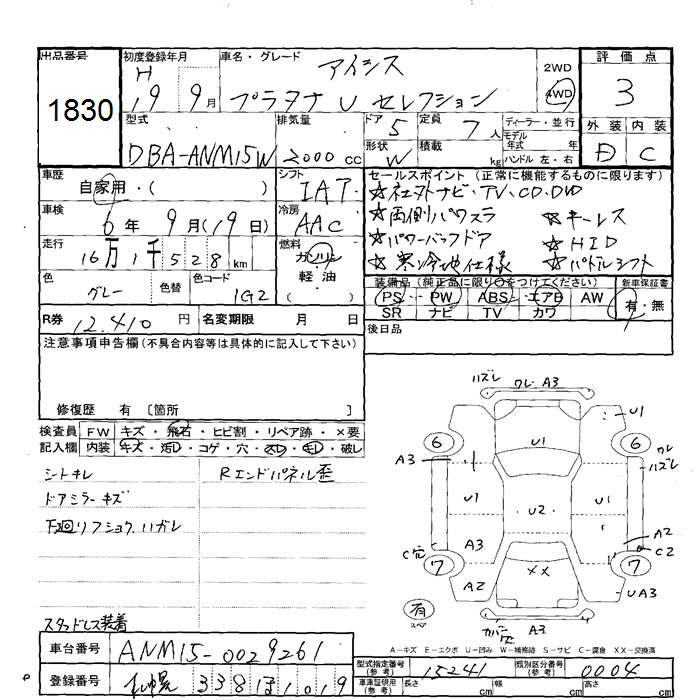 出品番号
1830
初度登録年月
H
19 9月
車名・グレード
アイシス
プラタナ U セレクション
2WD
4WD
評価点
3
外装 内装
D C
型式
DBA-ANM15W
排気量
2000cc
ドア
5
形状
W
定員
7人
積載
kg
ディーラー・並行
モデル
年式 年式
ハンドル 左・右
車歴
自家用・( )
車検
6年 9月(19日)
走行
16万1千528km
色
グレー
色替
色コード
1G2
シフト
IAT
冷房
AAC
燃料
ガソリン
軽・油
( )
セールスポイント (正常に機能するものに限ります)
☆社外ナビ・TV・CD・DVD
☆両側パワスラ
☆キーレス
☆パワーバックドア
☆HID
☆寒冷地仕様
☆パドルシフト
装備品 (純正品に限り○をつけてください)
PS PW ABS エアB AW
SR ナビ TV カワ
新車保証書
有・無
後日品
R券 12,410 円
名変期限 月 日
注意事項申告欄 (不具合内容等は具体的に記入して下さい)
修復歴 有 〔箇所 〕
検査員
記入欄
FW キズ・飛石・ヒビ割・リペア跡・×要
内装 キズ・汚レ・コゲ・穴・スレ・キレ・破レ
シートキレ
Rエンドパネル歪
ドアミラーキズ
下廻りフショク ハガレ
スタッドレス装着
ハズレ
ワレ A3
U1
U1
6
6
ワレ
ハズレ
A3
U1
U2
U1
A3
A2
C2
C穴
7
7
A2
XX
UA3
有
スペア
カバー
欠
A3
A－キズ E－エクボ U－凹ミ W－補修跡 S－サビ C－腐食 XX－交換済
車台番号
ANM15-0029261
登録番号
札幌 338 ほ 1019
型式指定番号
(参考)
15241
類別区分番号
(参考)
0004
車庫証明用
(参考)
長さ cm
幅 cm
高さ cm